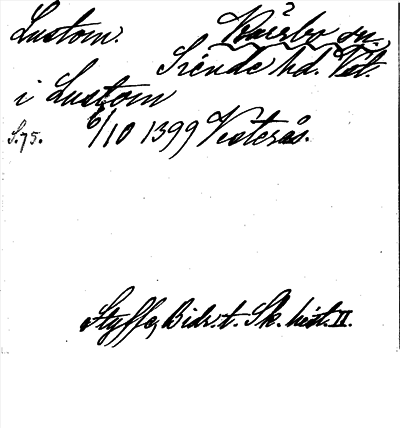 Lustom. Kärrbo sn.
Siende hd. Vst.
i Lustom
S. 75. 6/10 1399 Vesterås.
Styffe, Bidr. t. Sk. hist. II.